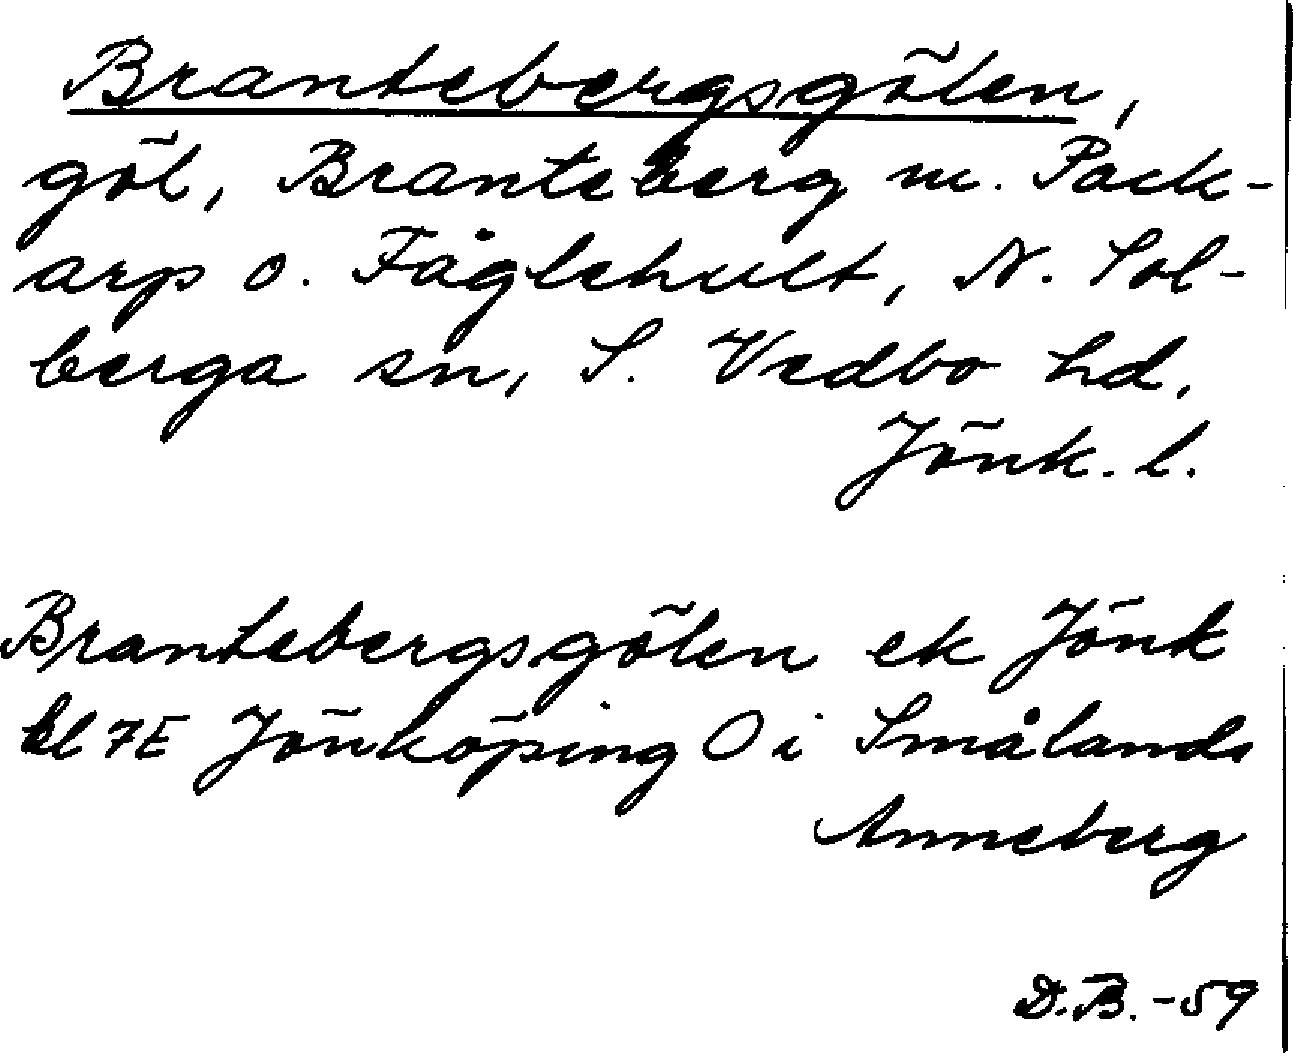 Brantebergsgölen,
göl, Branteberg m. Pack-
arp o. Fåglehult, N. Sol-
berga sn, S. Vedbo hd.
Jönk. l.
Brantebergsgölen ek Jönk
bl 7E Jönköping O i Smålands
Anneberg
D.B. -59